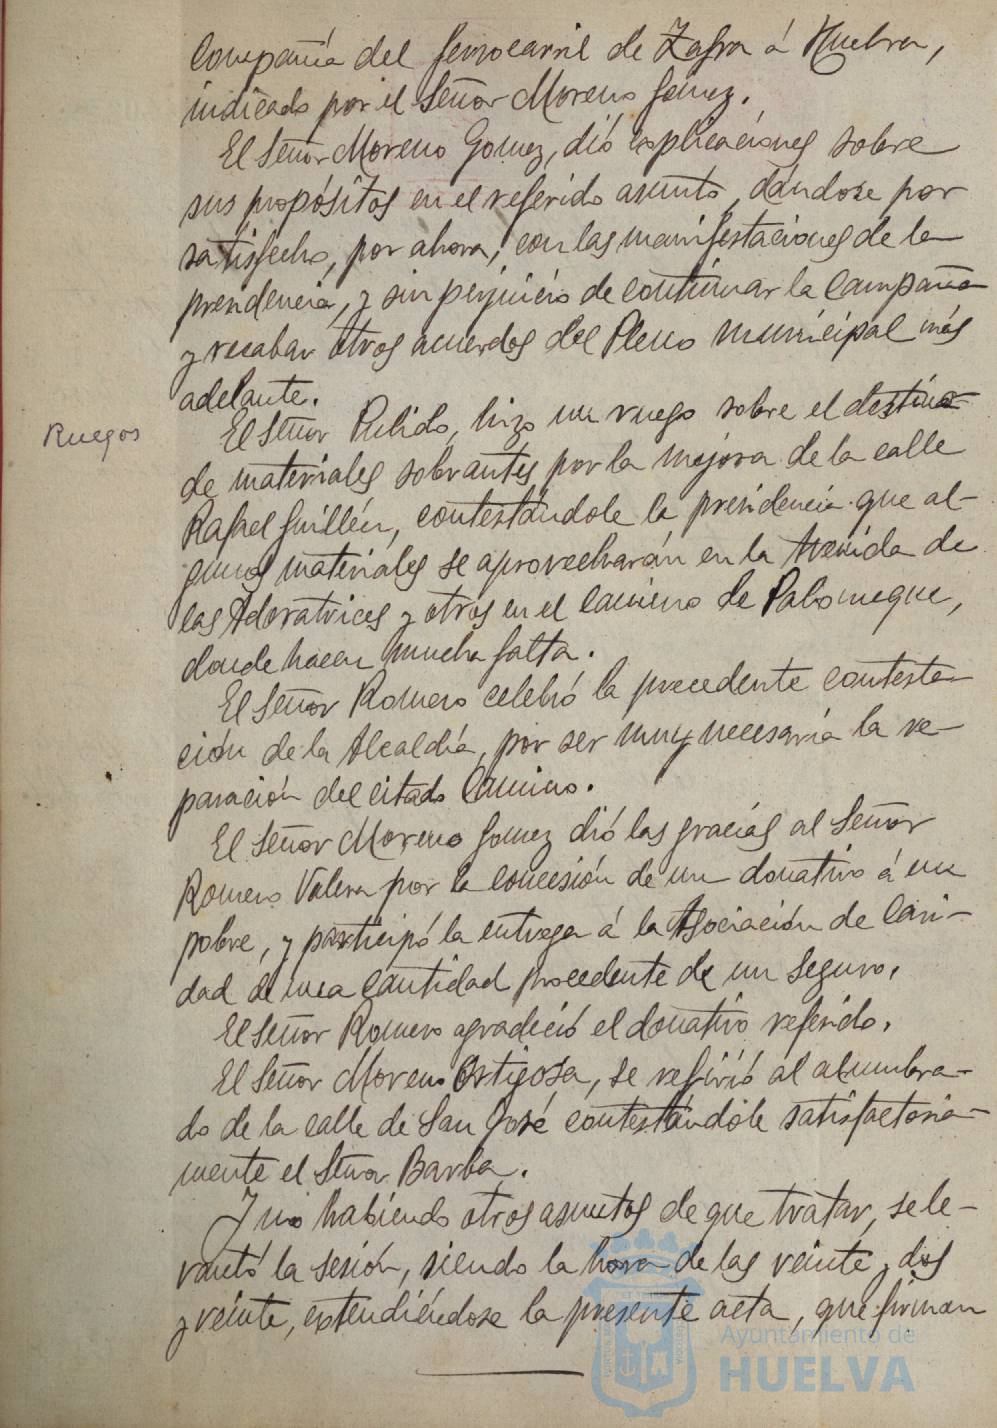 Compañía del ferrocarril de Zafra á Huelva,
indicado por el Señor Moreno Gómez.
El Señor Moreno Gomez, dió explicaciones sobre
sus propósitos en el referido asunto, dándose por
satisfecho, por ahora, con las manifestaciones de la
presidencia, y sin perjuicio de continuar la campaña
y recabar otros acuerdos del Pleno municipal más
adelante.
Ruegos
El Señor Pulido, hizo un ruego sobre el destino
de materiales sobrantes por la mejora de la calle
Rafael Guillén, contestándole la presidencia que al-
gunos materiales se aprovecharán en la Avenida de
las Adoratrices y otros en el camino de Palomeque,
donde hacen mucha falta.
El Señor Romero celebró la precedente contesta-
ción de la Alcaldía, por ser muy necesaria la re-
paración del citado Camino.
El Señor Moreno Gomez dió las gracias al Señor
Romero Valera por la concesión de un donativo á un
pobre, y participó la entrega á la Asociación de Cari-
dad de una cantidad procedente de un seguro.
El Señor Romero agradeció el donativo referido.
El Señor Moreno Ortigosa, se refirió al alumbra-
do de la calle de San José contestándole satisfactoria-
mente el Señor Barba.
Y no habiendo otros asuntos de que tratar, se le-
vantó la sesión, siendo la hora de las veinte y dos
y veinte, extendiéndose la presente acta, que firman
Ayuntamiento de
HUELVA